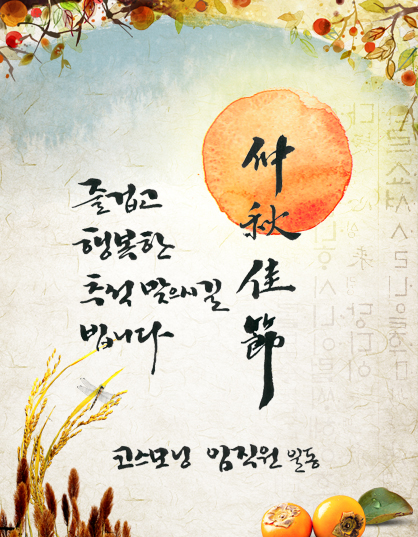 仲秋佳節
즐겁고
행복한
추석 맞으시길
빕니다
코스모닝 임직원 일동